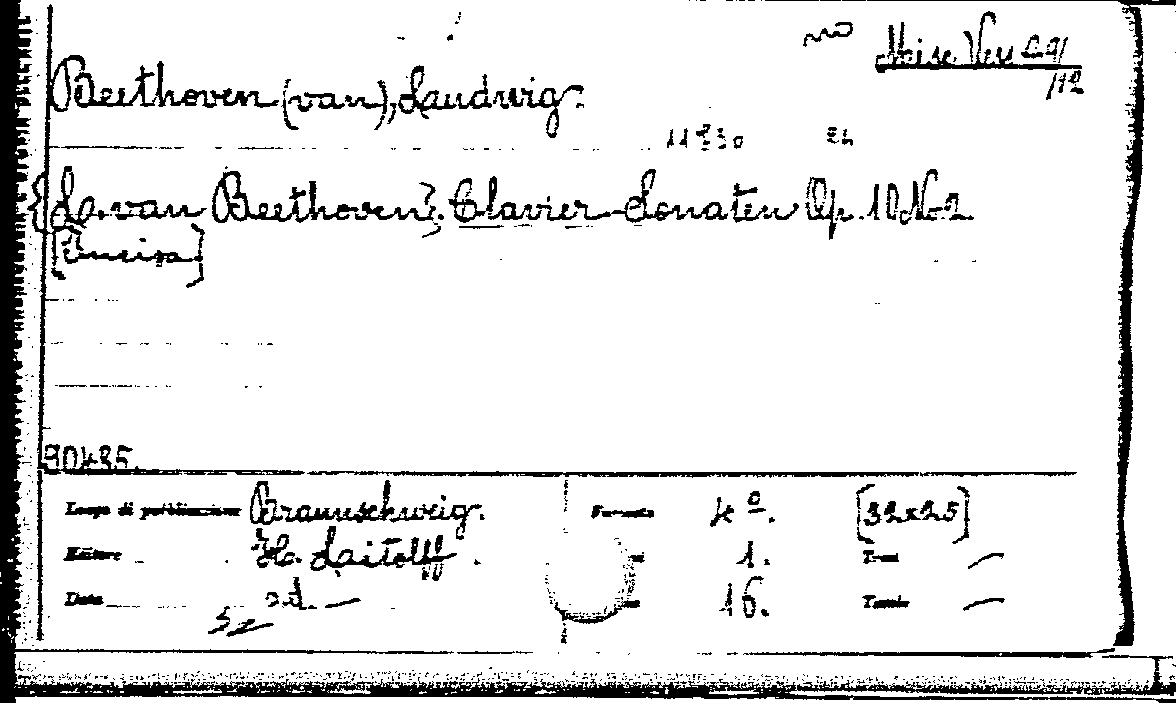 Beethoven (van), Laudwig.
{L. van Beethoven}. Clavier-Sonaten Op. 10 No 2
[Incisa]
90485.
Luogo di pubblicazione Braunschweig. Formato 4º. [32x25]
Editore H. Laitolff. 1. Tomi —
Data s.d. — 16. Tavole —